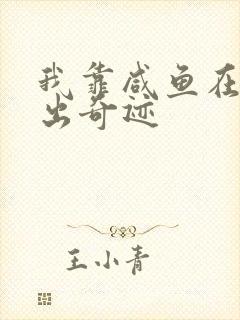 我靠咸鱼在
出奇迹
王小青